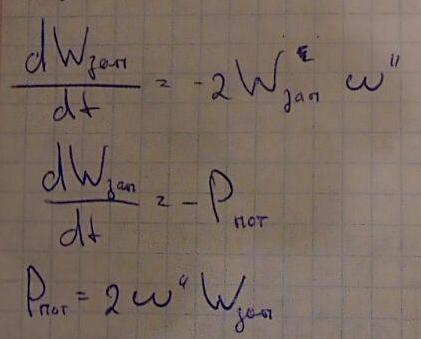 dWзап/dt = -2 Wзап^ε ω''
dWзап/dt = - Pпот
Pпот = 2ω'' Wзап